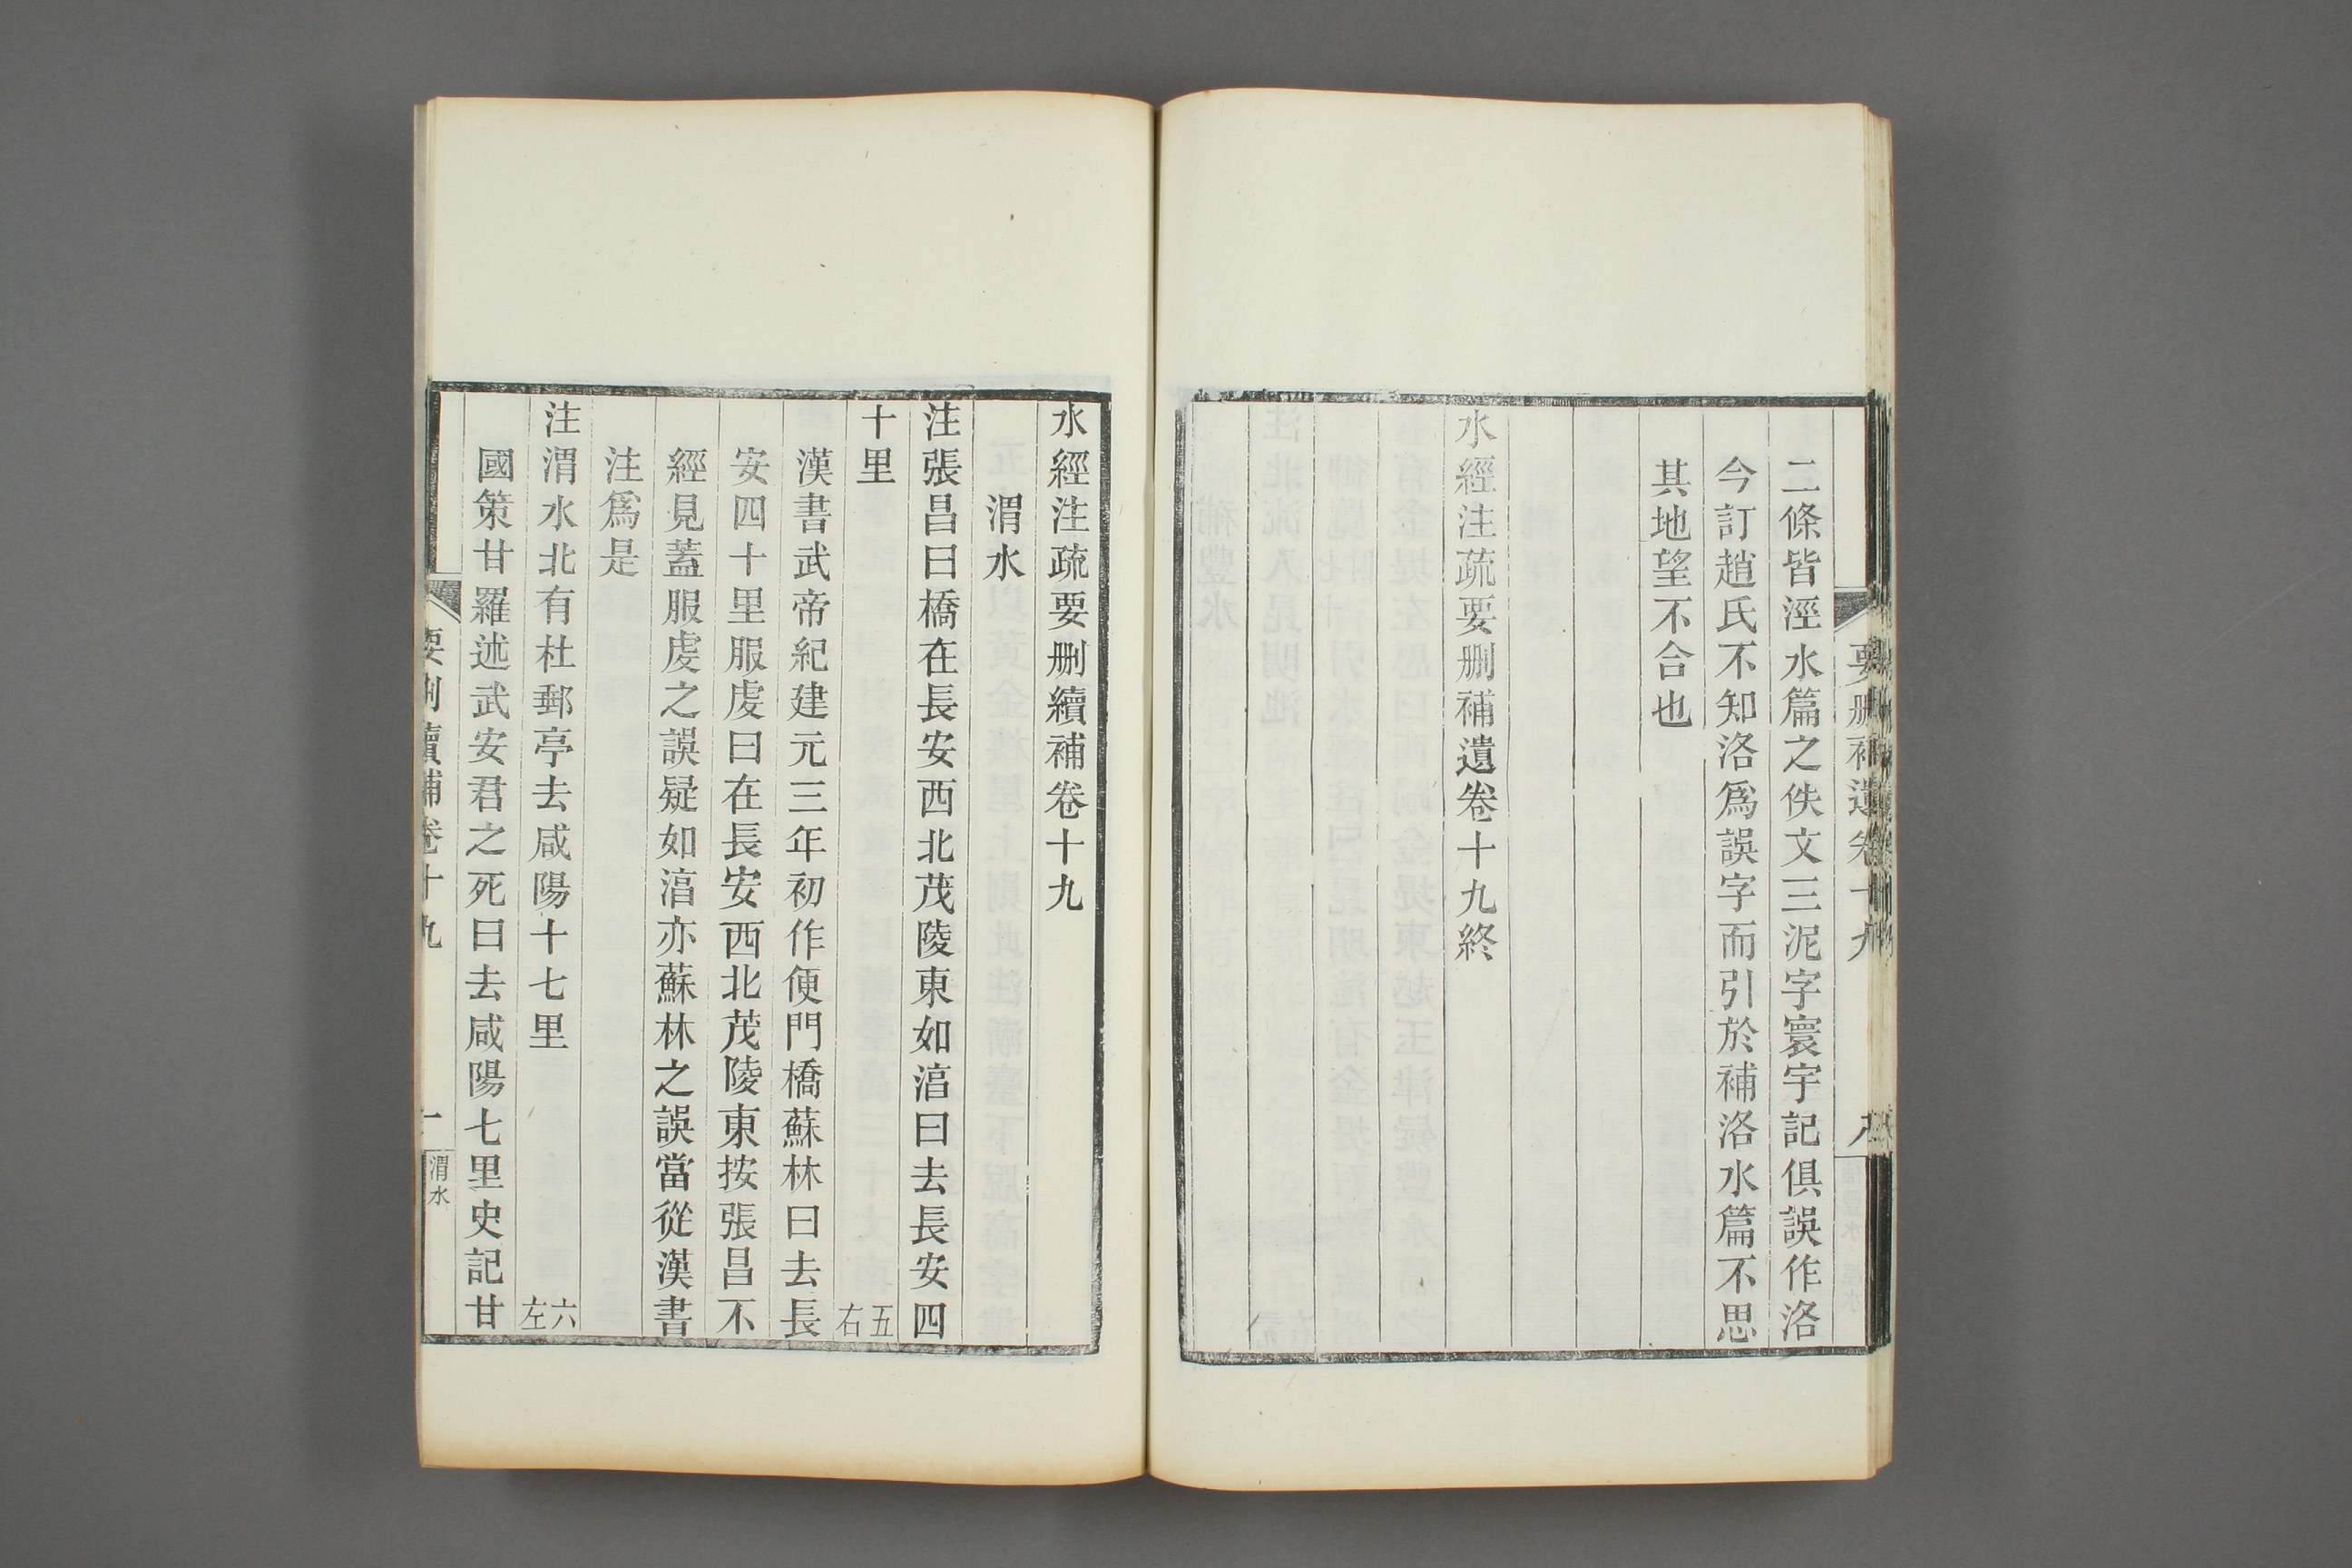 二條皆涇水篇之佚文三泥字寰宇記俱誤作洛
今訂趙氏不知洛爲誤字而引於補洛水篇不思
其地望不合也
水經注疏要刪補遺卷十九終
要刪補遺卷十九
水經注疏要刪續補卷十九
渭水
注張昌曰橋在長安西北茂陵東如湻曰去長安四
十里
五右
漢書武帝紀建元三年初作便門橋蘇林曰去長
安四十里服虔曰在長安西北茂陵東按張昌不
經見蓋服虔之誤疑如湻亦蘇林之誤當從漢書
注爲是
注渭水北有杜郵亭去咸陽十七里
六左
國策甘羅述武安君之死曰去咸陽七里史記甘
要刪續補卷十九
一
渭水